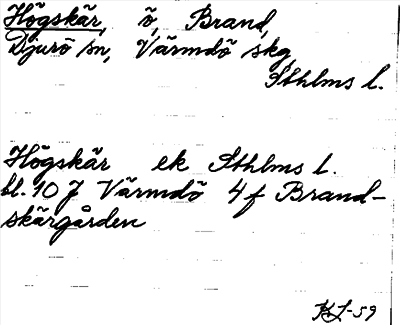 Högskär, ö, Brand,
Djurö sn, Värmdö skg,
Sthlms l.
Högskär ek Sthlms l.
bl. 10 J Värmdö 4 f Brand-
skärgården
KL-59